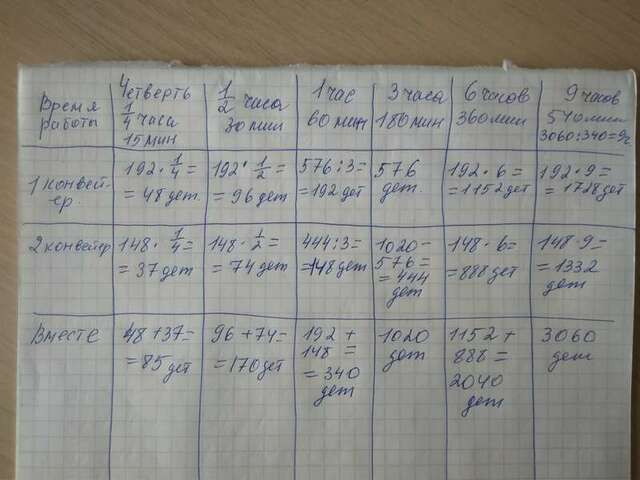 Время работы
Четверть
1/4 часа
15 мин
1/2 часа
30 мин
1 час
60 мин
3 часа
180 мин
6 часов
360 мин
9 часов
540 мин
3060:340=9ч
1 конвей-
ер.
192·1/4=
=48 дет.
192·1/2=
=96 дет
576:3=
=192 дет
576
дет.
192·6=
=1152 дет
192·9=
=1728 дет
2 конвейер
148·1/4=
=37 дет
148·1/2=
=74 дет
444:3=
=148 дет
1020-
576=
=444
дет
148·6=
=888 дет
148·9=
=1332
дет
Вместе
48+37=
=85 дет
96+74=
=170 дет
192+
148=
=340
дет
1020
дет
1152+
888=
2040
дет
3060
дет